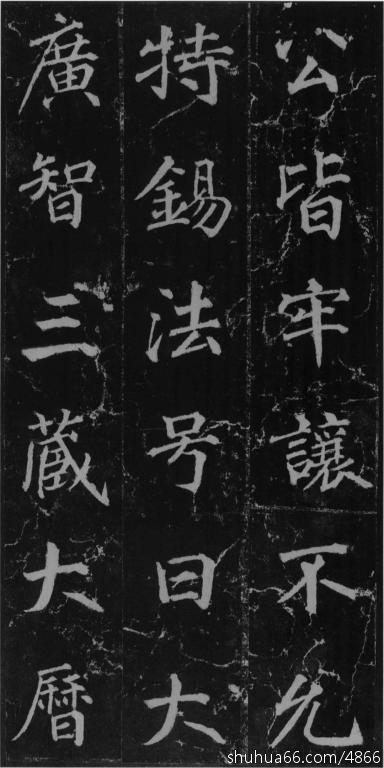 公皆牢讓不允
特錫法号曰大
廣智三藏大曆
shuhua66.com/4866